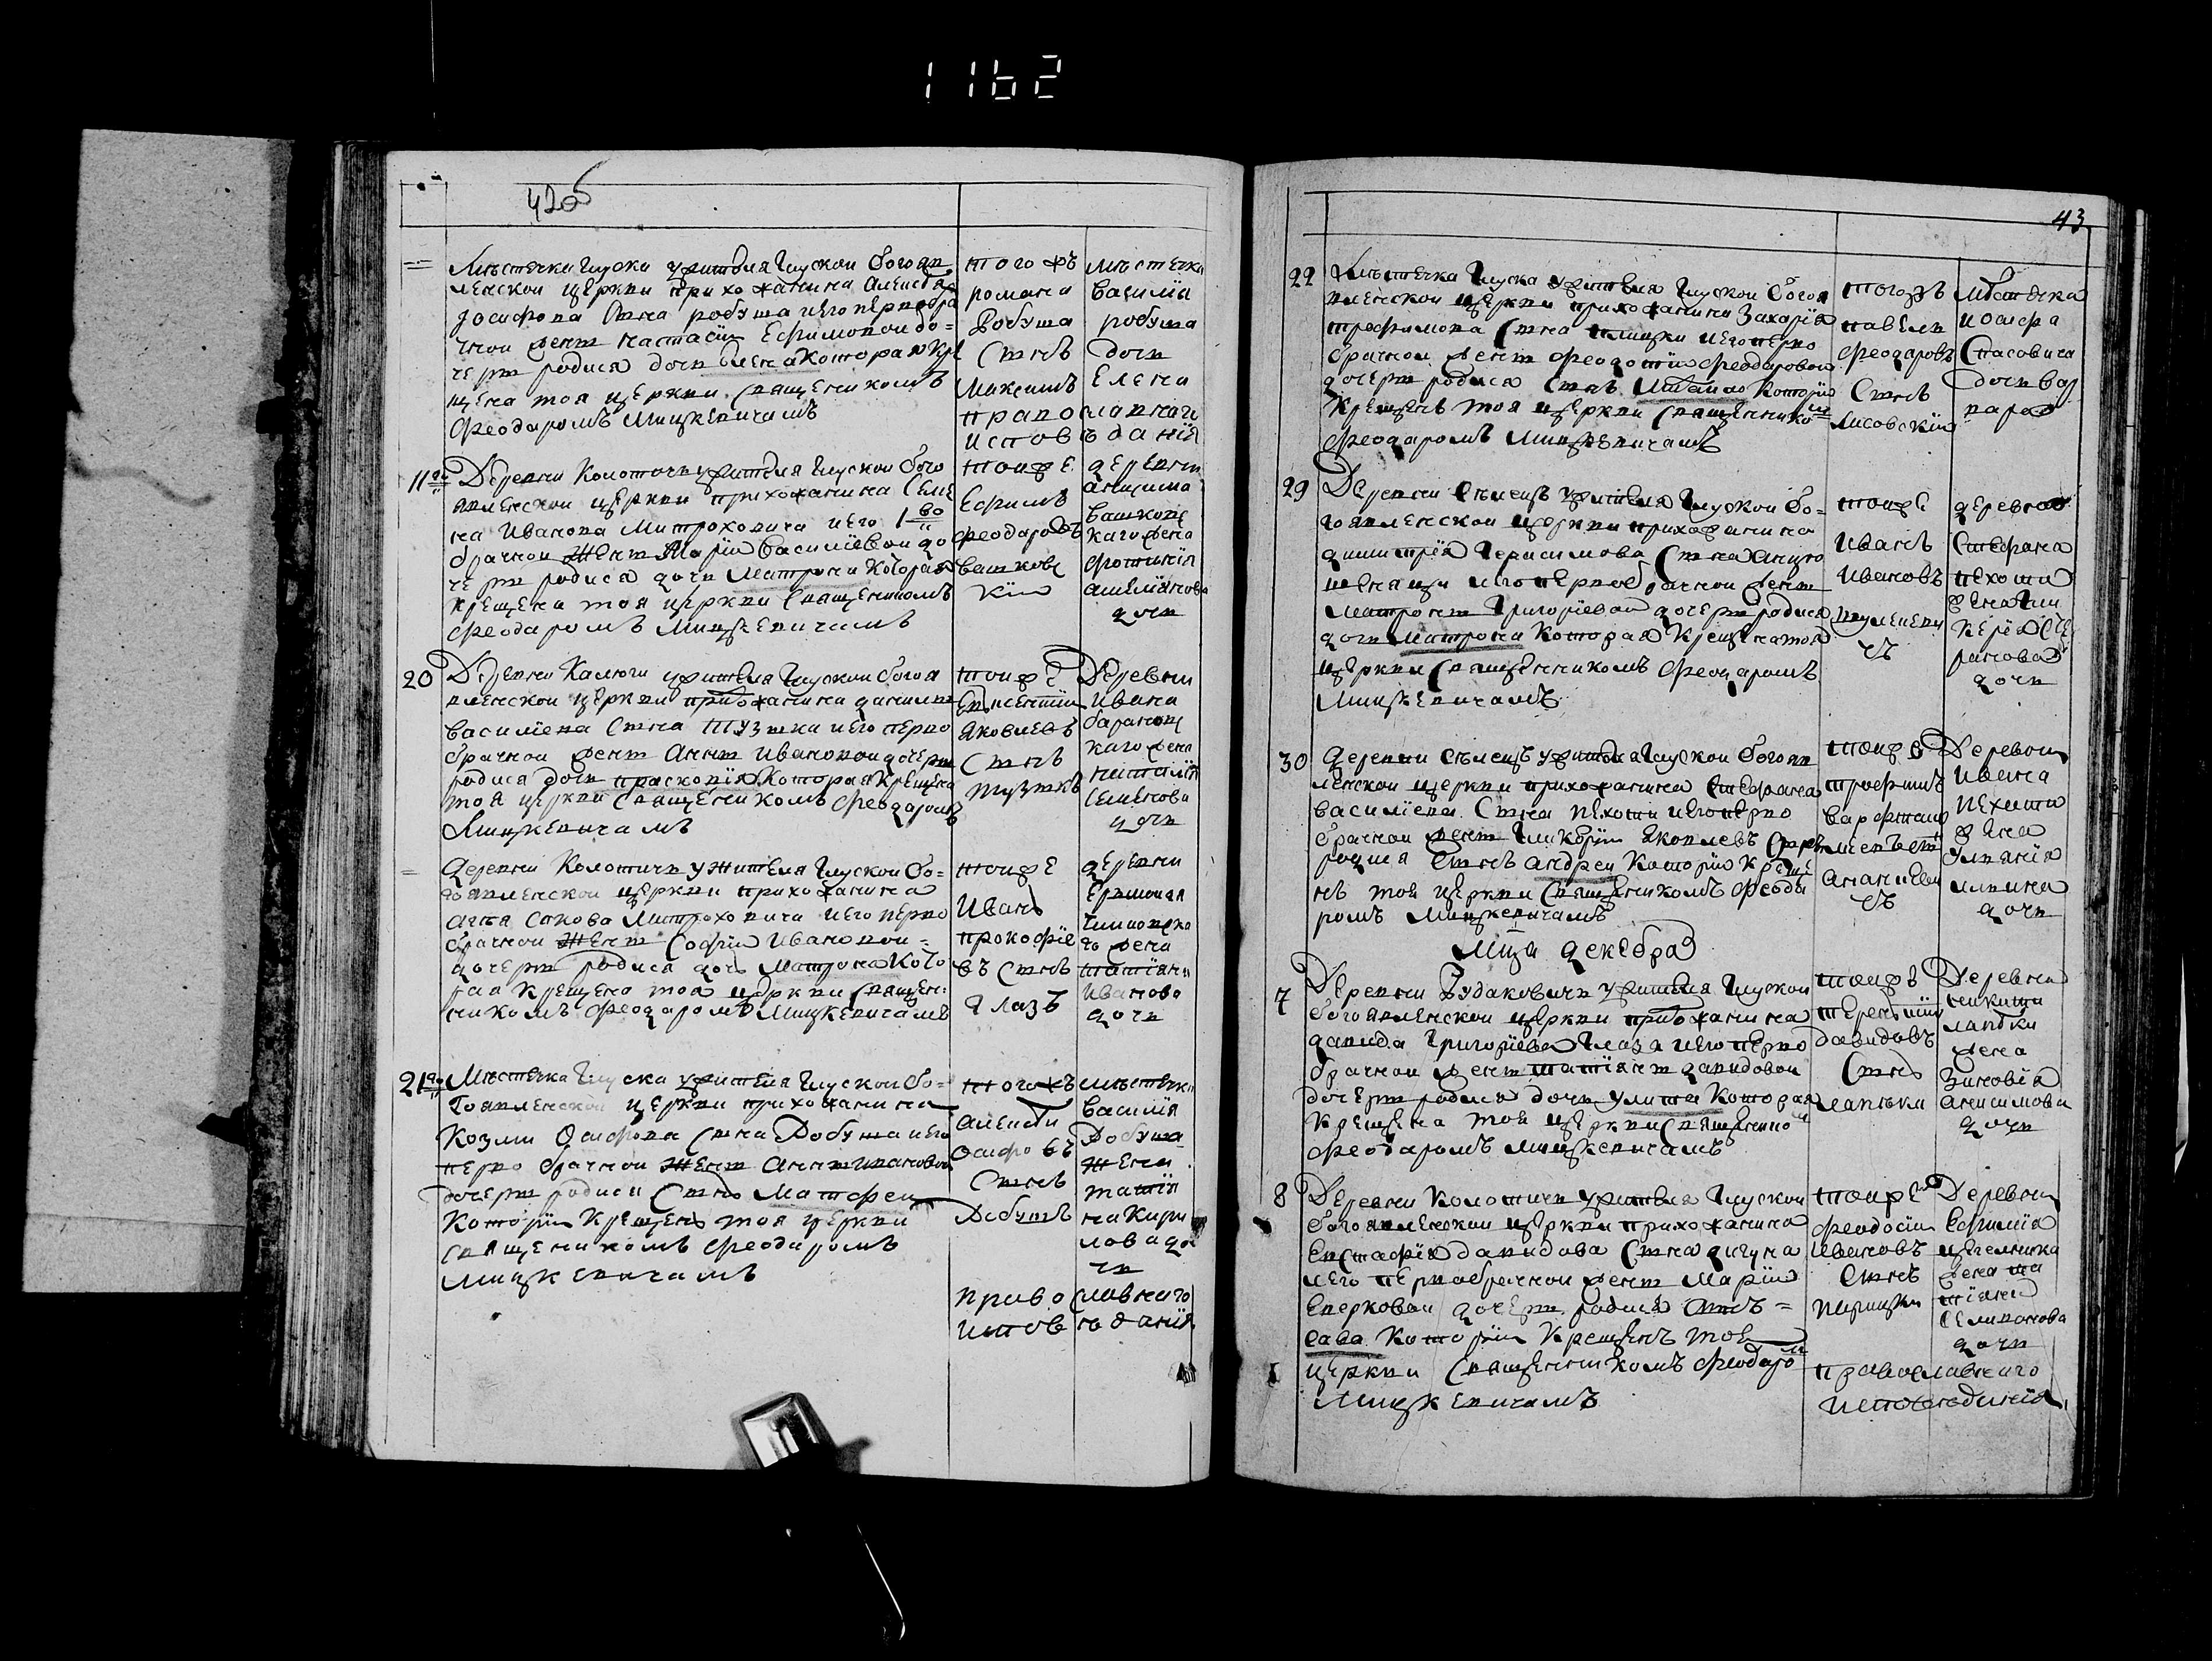 1162
42об
Мѣстечка Глуска ужителя Глускои богояв
ленскои церкви прихожанина Алексѣя
Іосифова Сына робуша иего первобра
чнои жены настасіи Ефимовои до=
черы родися дочь Елена котора кре
щена тоя церкви священикомъ
Феодаромъ Мицкевичамъ
тогожъ
романа
Робуша
Сынъ
Максимъ
мѣстечка
Василія
робуша
дочь
Елена
православнаго
исповѣданія
11го Деревни Колотичь ужителя Глускои бого
явленскои церкви прихожанина Семе
на Иванова Митроховича иего 1во
брачнои Жены Маріи Василіевои до
черы родися дочь Матрона Которая
крещена тоя церкви священикомъ
Феодаромъ Мицкевичамъ
тоиже
Ефимъ
Феодаровъ
вашковс
кіи
деревни
анисима
вашковс
каго жена
Фотинія
амеліянова
дочь
20 Деревни Калюги ужителя Глускои богоя
вленскои церкви прихожанина данилы
Василіева Сына Тузика иего перво
брачнои жены Анны Ивановои дочеры
родися дочь праскопія Которая Крещена
тоя церкви священикомъ Феодаромъ
Мицкевичамъ
тоиже
Яковлевъ
Сынъ
Деревни
Ивана
каго жена
наталія
Семенова
дочь
= деревни Колотичь ужителя Глускои бо=
гоявленскои церкви прихожанина
Митроховича иего перво
брачнои Жены Софіи Ивановои=
дочеры родися дочь Матрона Кото
рая Крещена тоя церкви священ=
никомъ Феодаромъ Мицкевичамъ
тоиже
Иванъ
прокофіе
въ Сынъ
Глазъ
деревни
го жена
татіяна
Иванова
дочь
21го Мѣстечка Глуска ужителя Глускои бо=
гоявленскои церкви прихожанина
Козмы Осифова Сына Робуша иего
перво брачнои Жены Анны ивановои
дочеры родися Сынъ Матфеи
Которіи Крещенъ тоя церкви
священикомъ Феодаромъ
Мицкевичамъ
тогожъ
Алексѣи
Осифовъ
Сынъ
Робушъ
мѣстечка
Василія
Робуша
Жена
татія
на Кири
лова до
чь
православнаго
исповѣданія
43
22 Мѣстечка Глуска ужителя Глускои богоя
вленскои церкви прихожанина Захарія
трофимова Сына иего перво
брачнои жены Феодотіи Феодаровои
дочеры родися Сынъ Которіи
Крещенъ тоя церкви священико
Феодаромъ Мицкевичамъ
тогожъ
павелъ
Феодаровъ
Сынъ
Лисовскіи
Мѣстечка
иосифа
Спасовича
дочь вар
вара
29 Деревни Сѣлецъ ужителя Глускои бо=
гоявленскои церкви прихожанина
димитрія Герасимова Сына
иего первобрачнои жены
Матроны Григоріевои дочеры родися
дочь Матрона Которая Крещена тоя
церкви священникомъ Феодаромъ
Мицкевичамъ
тоиже
Иванъ
Ивановъ
деревни
Стефана
пехоты
жена Гли
керія Сте
фанова
дочь
30 деревни Сѣлецъ ужителя Глускои богояв
ленскои церкви прихожанина Стефана
василіева Сына пехоты иего перво
брачнои жены Гликеріи Яковлевъ
родися Сынъ андреи Которіи креще
нъ тоя церкви священикомъ Феода
ромъ Мицкевичамъ
тоиже
трофимъ
Деревни
Ивана
пехоты
жена
Уліянія
дочь
Мца декебра
7 Деревни Рудаковичь ужителя Глускои
богоявленскои церкви прихожанина
давида Григоріева Глаза иего перво
брачнои жены татіяны давидовои
дочеры родися дочь улита Которая
Крещена тоя церкви священико
Феодаромъ мицкевичамъ
тоижъ
терентіи
давидовъ
Сынъ
лапъки
Деревни
никиты
лапъки
жена
Зиновія
анисимова
дочь
8 Деревни Колотичь ужителя Глускои
богоявленскои церкви прихожанина
Евстафія давидова Сына
иего первобрачнои жены Маріи
дочеры родися Сынъ=
Сава Которіи Крещенъ тоя
церкви священникомъ Феодаро
Мицкевичамъ
тоиже
Феодосіи
Ивановъ
Сынъ
Деревни
Ефимія
жена та
тіяна
дочь
православнаго
исповѣданія